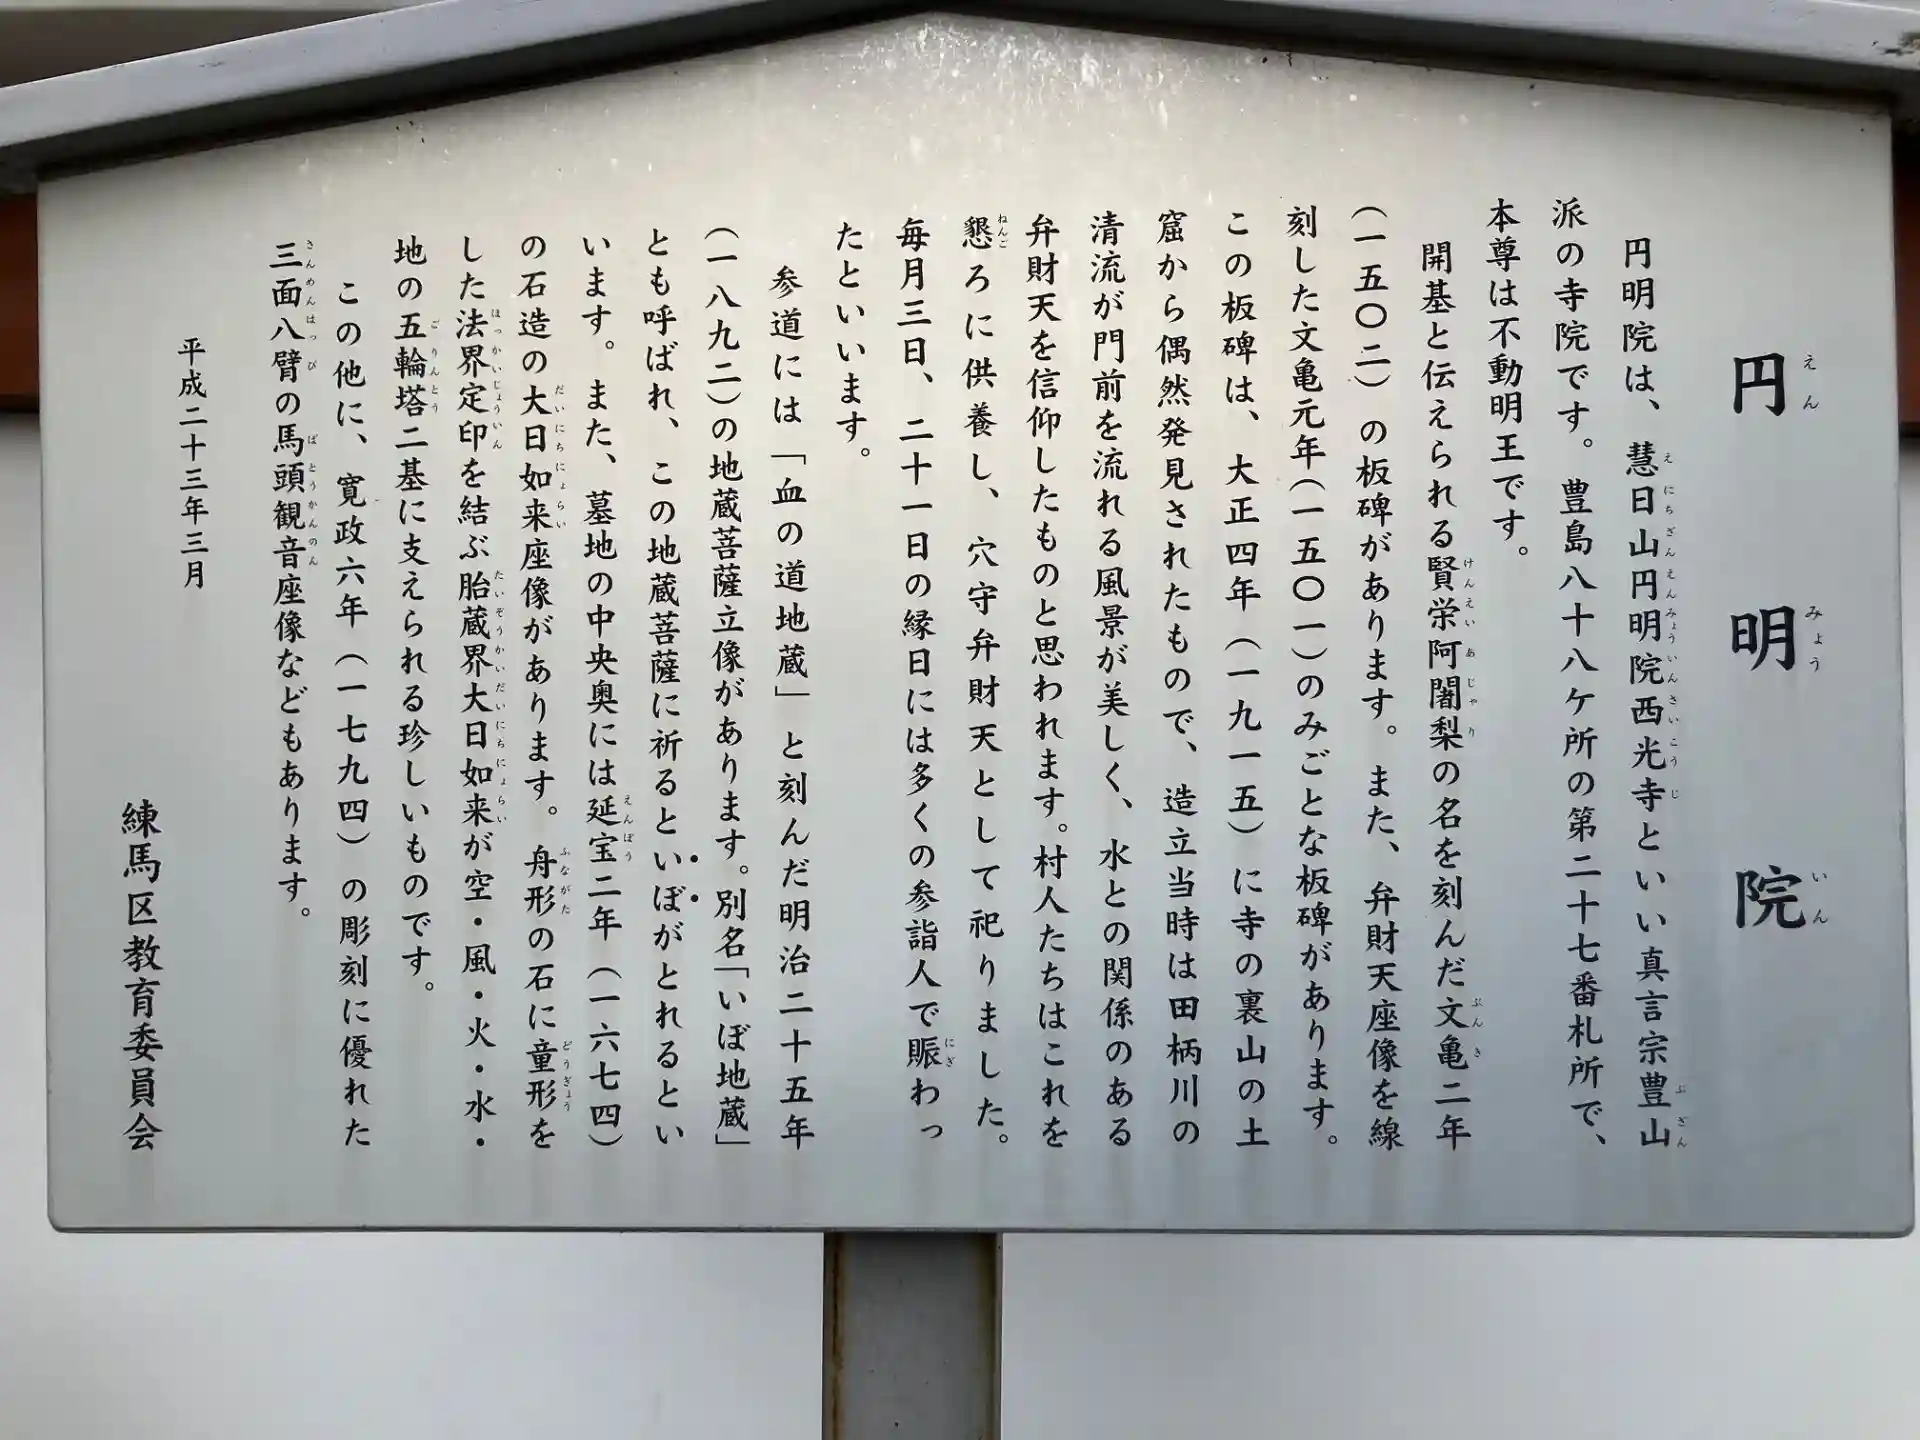 円明院
円明院は、慧日山円明院西光寺といい真言宗豊山
派の寺院です。豊島八十八ケ所の第二十七番札所で、
本尊は不動明王です。
開基と伝えられる賢栄阿闍梨の名を刻んだ文亀二年
（一五〇二）の板碑があります。また、弁財天座像を線
刻した文亀元年（一五〇一）のみごとな板碑があります。
この板碑は、大正四年（一九一五）に寺の裏山の土
窟から偶然発見されたもので、造立当時は田柄川の
清流が門前を流れる風景が美しく、水との関係のある
弁財天を信仰したものと思われます。村人たちはこれを
懇ろに供養し、穴守弁財天として祀りました。
毎月三日、二十一日の縁日には多くの参詣人で賑わっ
たといいます。
参道には「血の道地蔵」と刻んだ明治二十五年
（一八九二）の地蔵菩薩立像があります。別名「いぼ地蔵」
とも呼ばれ、この地蔵菩薩に祈るといぼがとれるとい
います。また、墓地の中央奥には延宝二年（一六七四）
の石造の大日如来座像があります。舟形の石に童形を
した法界定印を結ぶ胎蔵界大日如来が空・風・火・水・
地の五輪塔二基に支えられる珍しいものです。
この他に、寛政六年（一七九四）の彫刻に優れた
三面八臂の馬頭観音座像などもあります。
平成二十三年三月
練馬区教育委員会